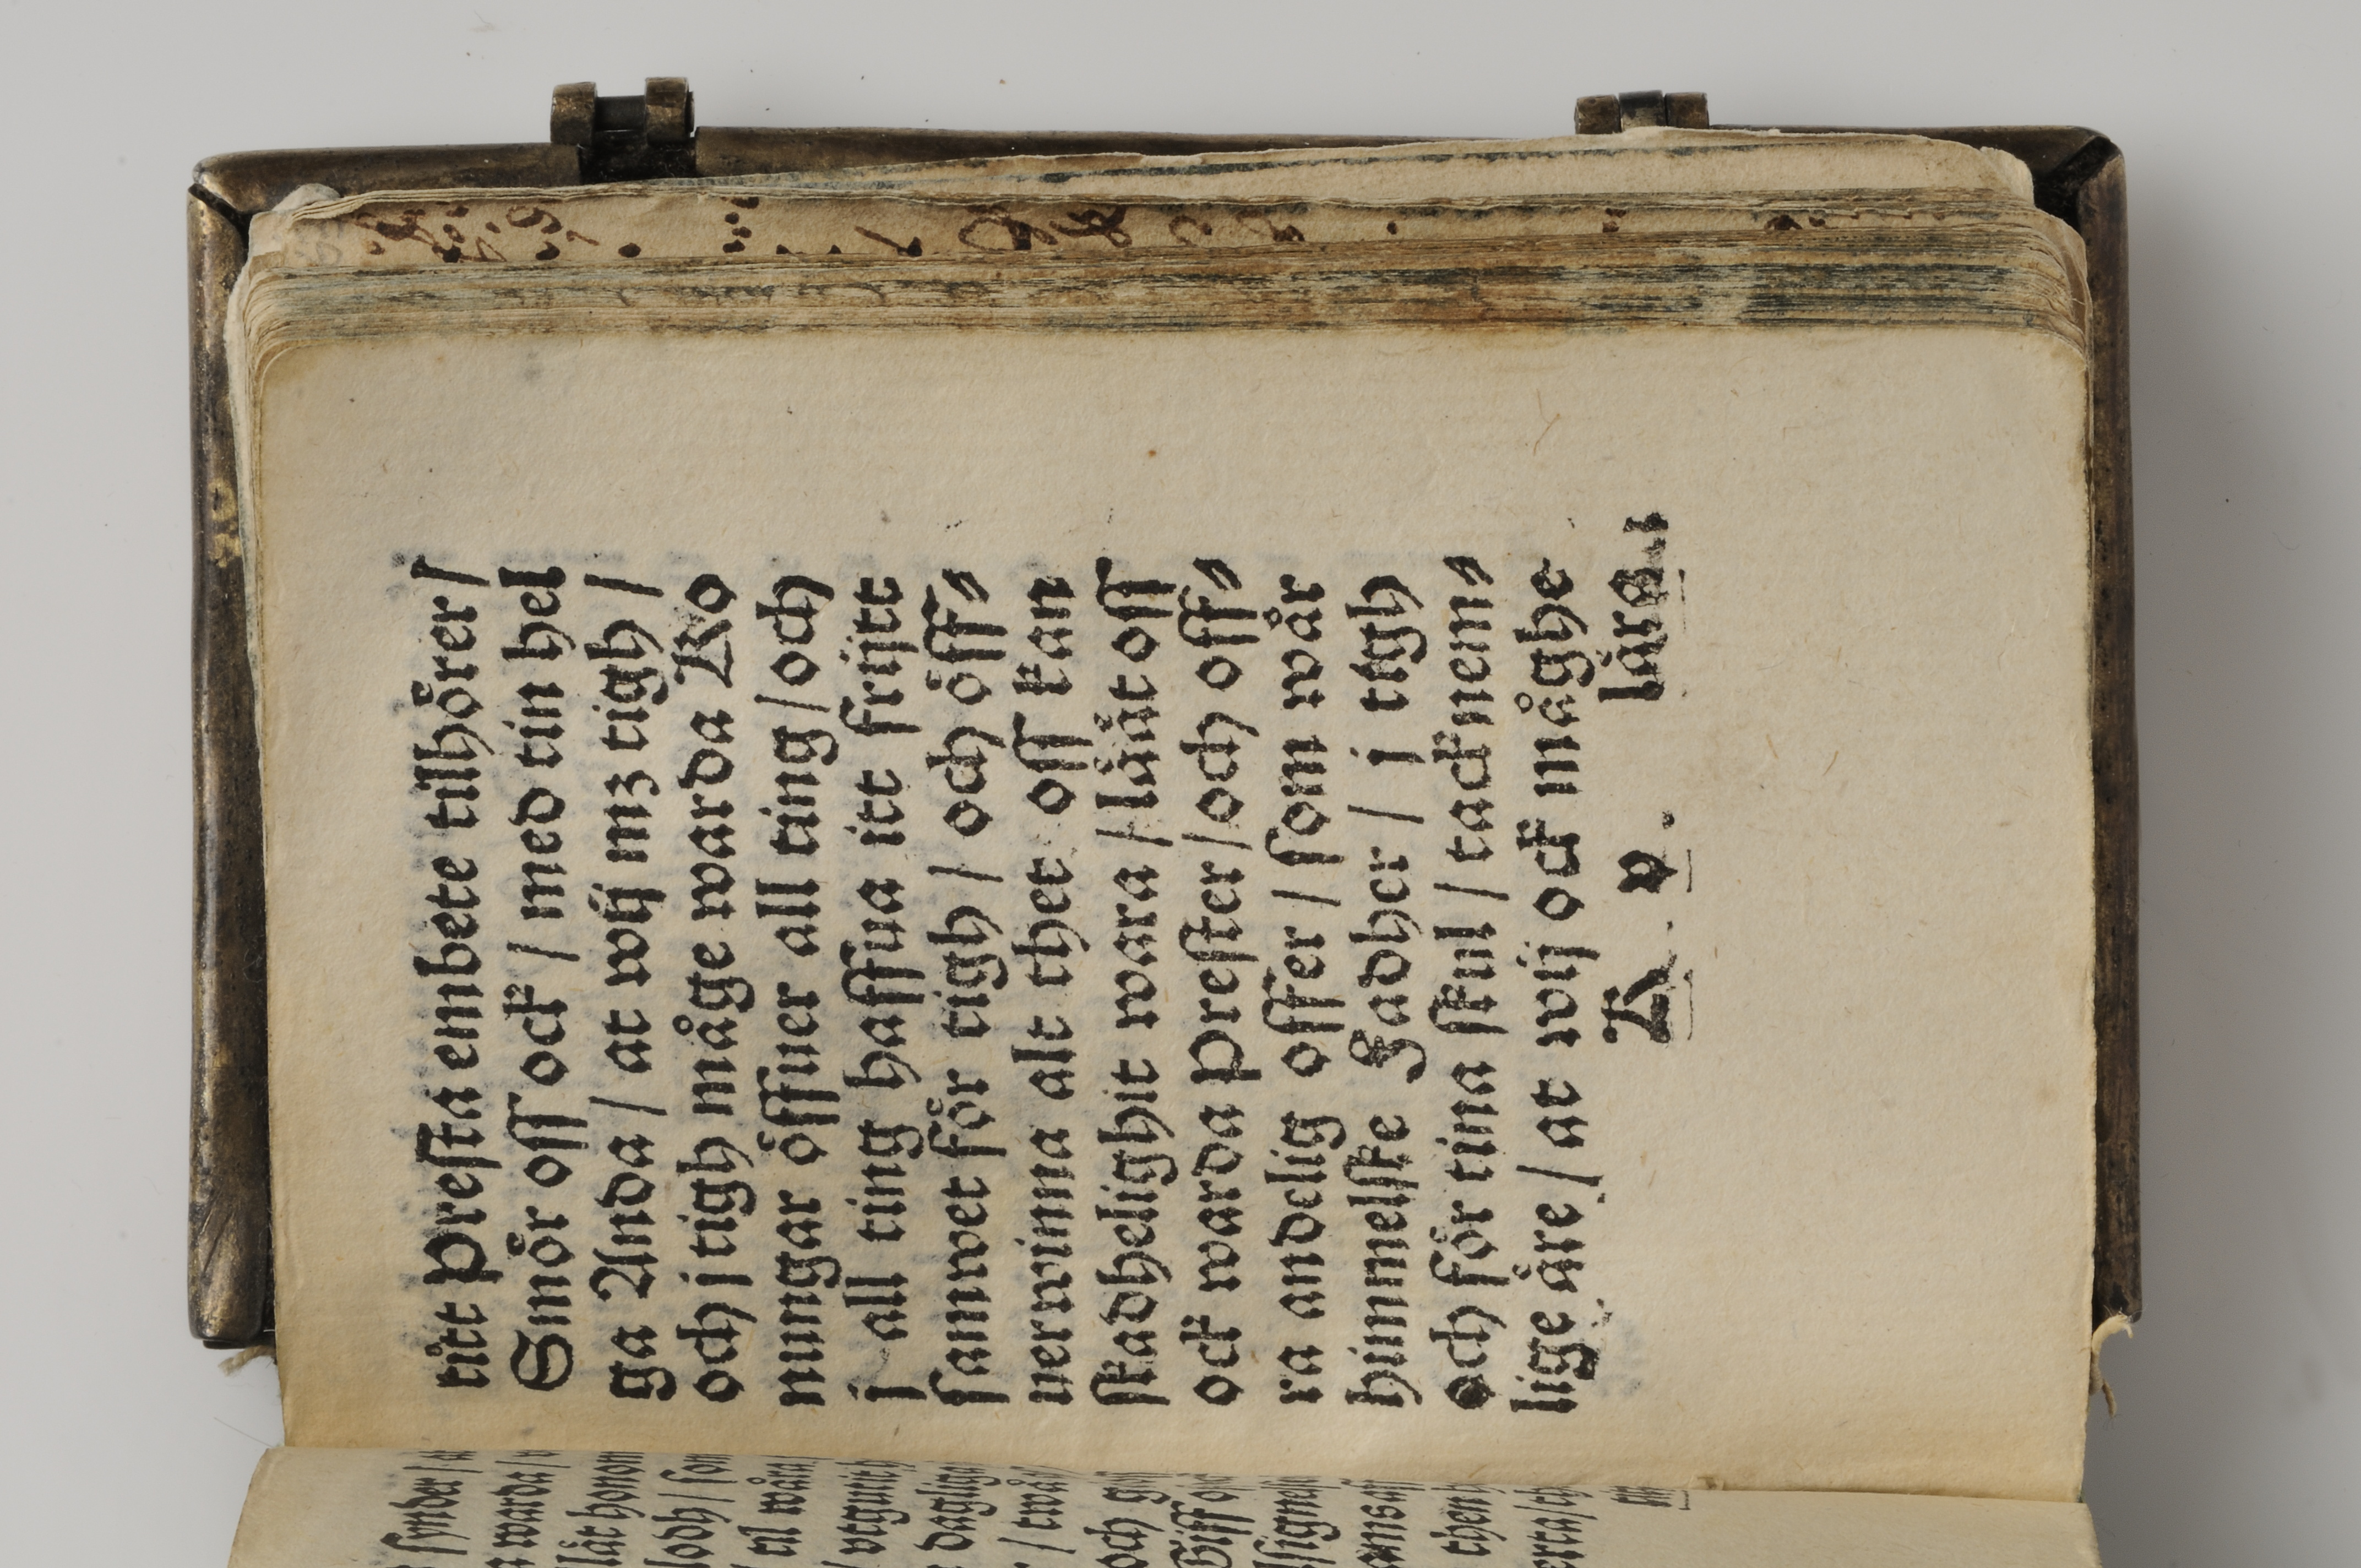 titt Presta embete tilhörer /
Smör oss ock / med tin hel
ga Anda / at wij mz tigh /
och j tigh måge warda Ko
nungar öffuer all ting / och
j all ting haffua itt frijtt
samwet för tigh / och öff⸗
uerwinna alt thet oss kan
skadhelighit wara / låt oss
ock warda Prester / och off⸗
ra andelig offer / som wår
himmelske Fadher / j tigh
och för tina skul / tacknem⸗
lige äre / at wij ock måghe
K v. lära
synder /
warda /
låt honom
til wåra
och
then